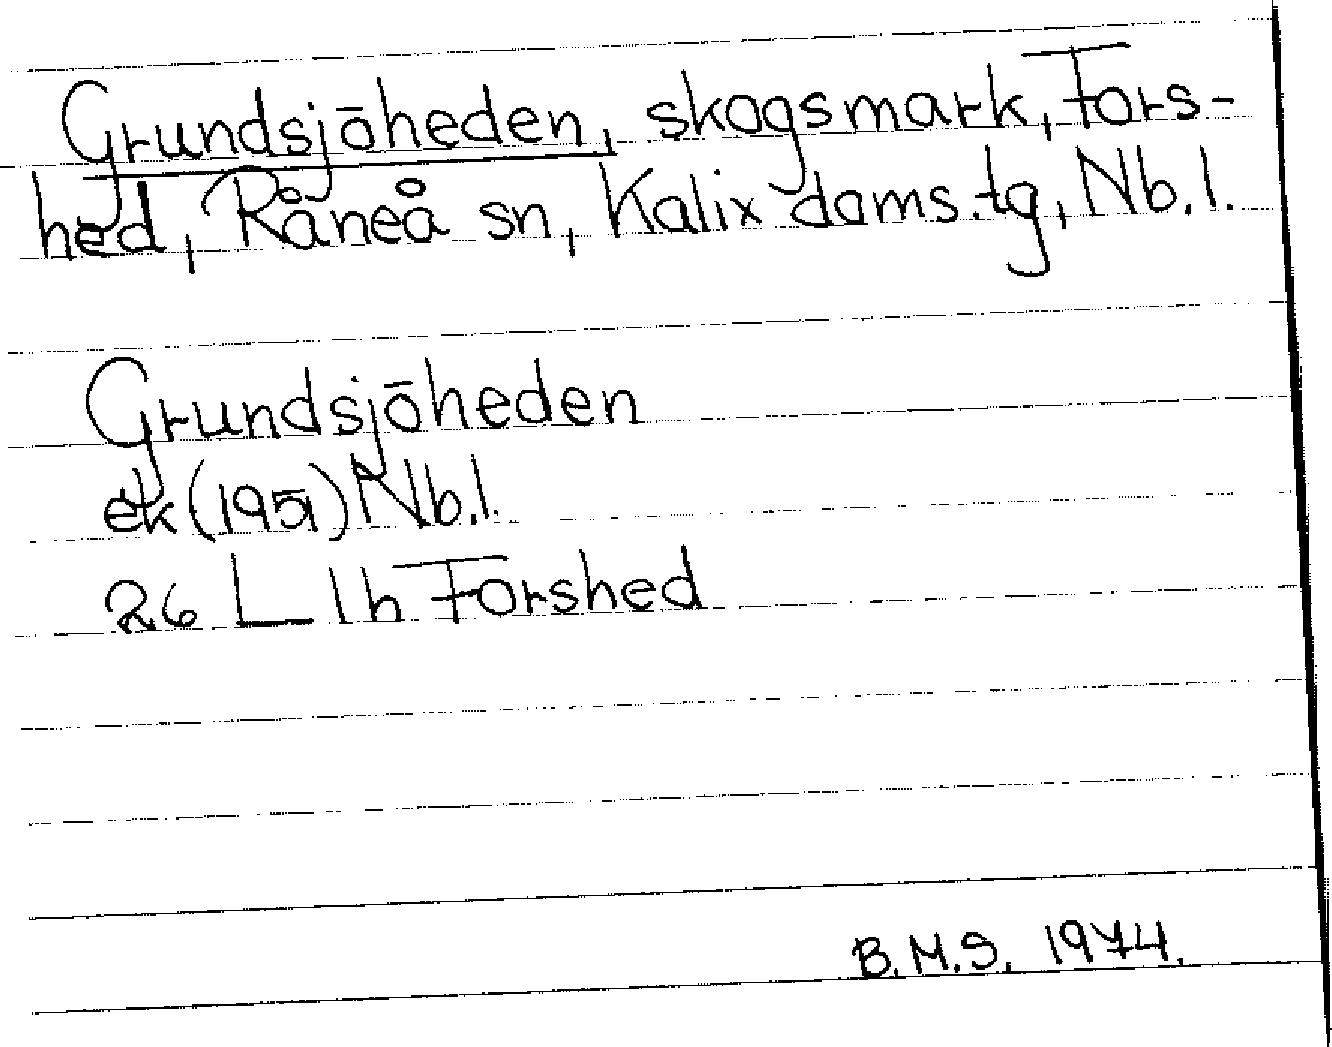 Grundsjöheden, skogsmark, Fors-
hed, Råneå sn, Kalix doms.tg, Nb.l.
Grundsjöheden
ek (1951) Nb.l.
26 L 1h Forshed
B.M.S. 1974.